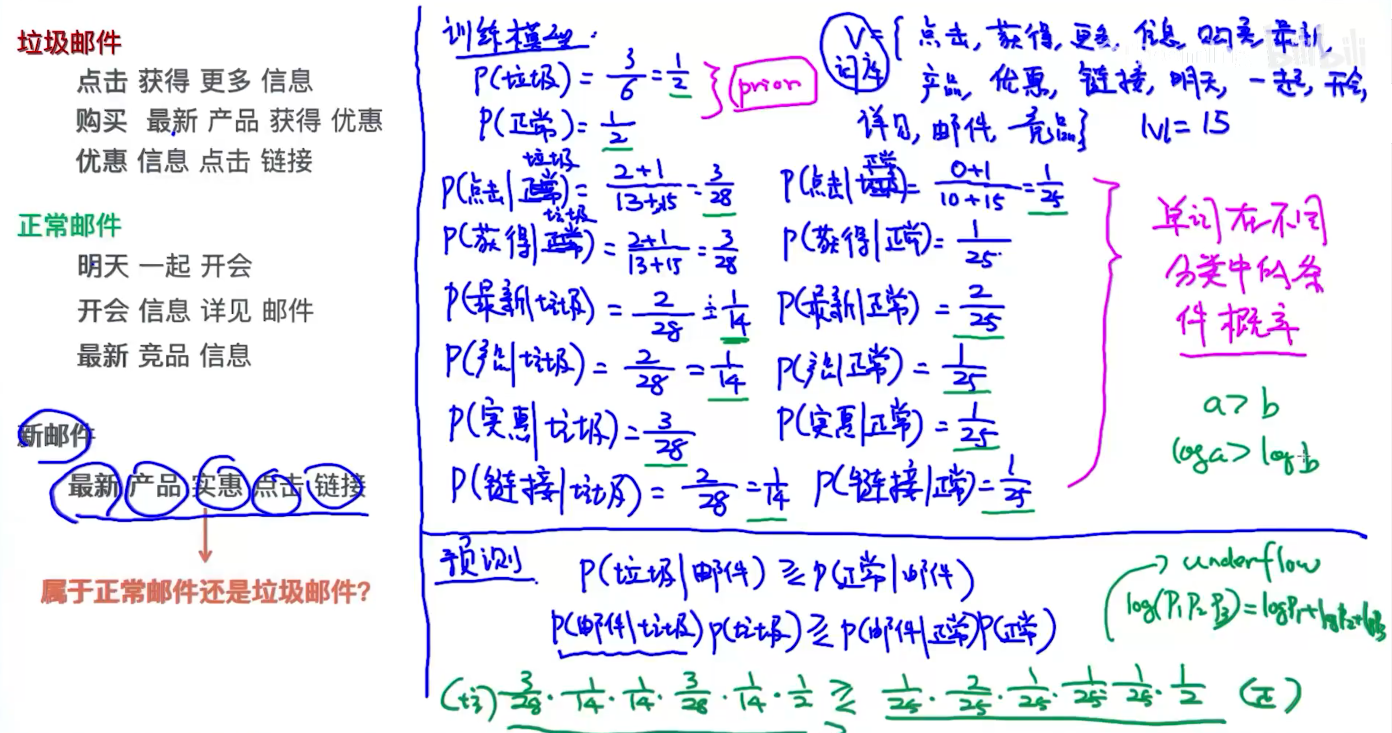 垃圾邮件
点击 获得 更多 信息
购买 最新 产品 获得 优惠
优惠 信息 点击 链接
正常邮件
明天 一起 开会
开会 信息 详见 邮件
最新 竞品 信息
新邮件
最新 产品 实惠 点击 链接
属于正常邮件还是垃圾邮件?
训练模型:
P(垃圾) = 3/6 = 1/2
P(正常) = 1/2
prior
V={ 点击, 获得, 更多, 信息, 购买, 最新,
词库
产品, 优惠, 链接, 明天, 一起, 开会,
详见, 邮件, 竞品} |V|= 15
bilibili
P(点击|垃圾) = 2+1/13+15 = 3/28 P(点击|正常) = 0+1/10+15 = 1/25
P(获得|垃圾) = 2+1/13+15 = 3/28 P(获得|正常) = 1/25
P(最新|垃圾) = 2/28 = 1/14 P(最新|正常) = 2/25
P(产品|垃圾) = 2/28 = 1/14 P(产品|正常) = 1/25
P(实惠|垃圾) = 3/28 P(实惠|正常) = 1/25
P(链接|垃圾) = 2/28 = 1/14 P(链接|正常) = 1/25
单词在不同
分类中的条
件概率
a > b
log a > log b
预识别
P(垃圾|邮件) ≥ P(正常|邮件)
P(邮件|垃圾) P(垃圾) ≥ P(邮件|正常) P(正常)
→ underflow
log(P1 P2 P3) = log P1 + log P2 + log P3
(垃) 3/28 · 1/14 · 1/14 · 3/28 · 1/14 · 1/2 ≥ 1/25 · 2/25 · 1/25 · 1/25 · 1/25 · 1/2 (正)